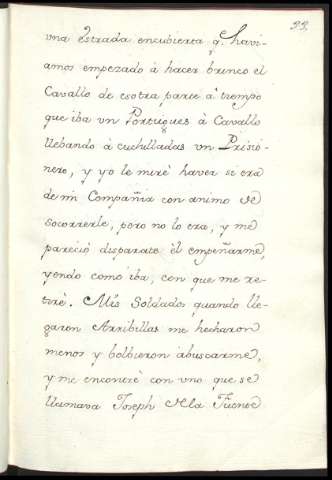 99.
vna estrada encubierta q.e havi-
amos empezado à hacer brinco el
Cavallo de esotra parte à tiempo
que iba vn Portugues à Cavallo
llebando à cuchilladas vn Prisio-
nero, y yo le miré haver se era
de mi Compañia con animo de
socorrerle, pero no lo era, y me
pareciò disparate èl empeñarme,
yendo como iba, con que me re-
tirè. Mis Soldados quando lle-
garon Arribillas me hecharon
menos y bolbieron abuscarme,
y me encontrè con vno que se
llamava Joseph de la